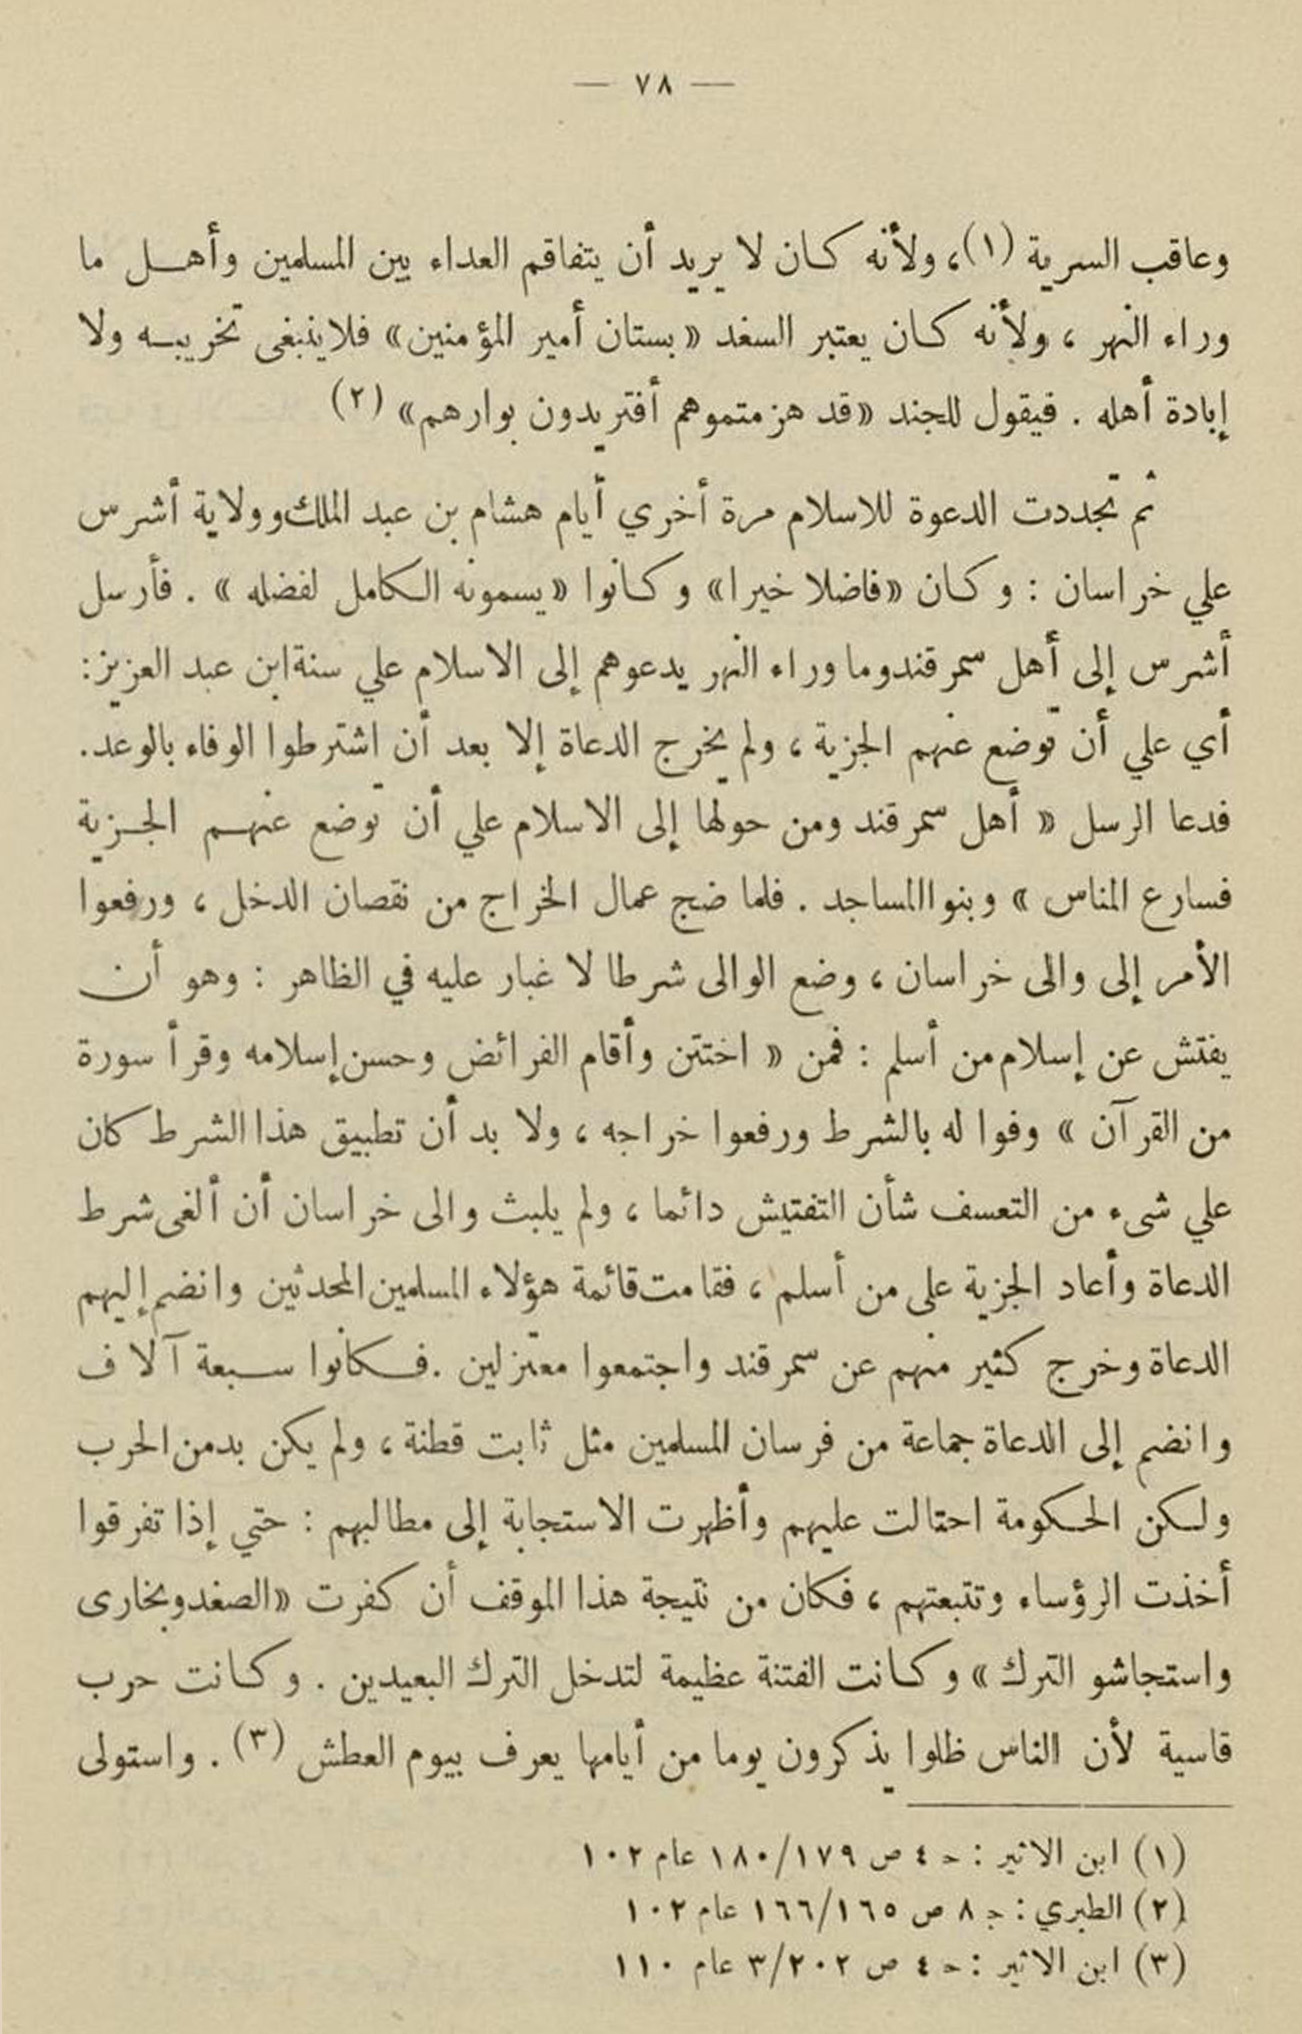 — ٧٨ —
وعاقب السرية (١)، ولأنه كان لا يريد أن يتفاقم العداء بين المسلمين وأهل ما
وراء النهر ، ولأنه كان يعتبر السغد « بستان أمير المؤمنين» فلاينبغى تخريبه ولا
إبادة أهله . فيقول للجند «قد هزمتموهم أفتريدون بوارهم» (٢)
ثم تجددت الدعوة للاسلام مرة أخري أيام هشام بن عبد الملك وولاية أشرس
علي خراسان : وكان «فاضلا خيرا» وكانوا «يسمونه الكامل لفضله» . فأرسل
أشرس إلى أهل سمرقند وما وراء النهر يدعوهم إلى الاسلام علي سنة ابن عبد العزيز:
أي علي أن توضع عنهم الجزية ، ولم يخرج الدعاة إلا بعد أن اشترطوا الوفاء بالوعد.
فدعا الرسل « أهل سمرقند ومن حولها إلى الاسلام علي أن توضع عنهم الجزية
فسارع الناس » وبنوا المساجد . فلما ضج عمال الخراج من نقصان الدخل ، ورفعوا
الأمر إلى والى خراسان ، وضع الوالى شرطا لا غبار عليه في الظاهر : وهو أن
يفتش عن إسلام من أسلم : فمن « اختتن وأقام الفرائض وحسن إسلامه وقرأ سورة
من القرآن » وفوا له بالشرط ورفعوا خراجه ، ولا بد أن تطبيق هذا الشرط كان
علي شىء من التعسف شأن التفتيش دائما ، ولم يلبث والى خراسان أن ألغى شرط
الدعاة وأعاد الجزية على من أسلم ، فقامت قائمة هؤلاء المسلمين المحدثين وانضم إليهم
الدعاة وخرج كثير منهم عن سمرقند واجتمعوا معتزلين . فكانوا سبعة آلاف
وانضم إلى الدعاة جماعة من فرسان المسلمين مثل ثابت قطنة ، ولم يكن بد من الحرب
ولكن الحكومة احتالت عليهم وأظهرت الاستجابة إلى مطالبهم : حتي إذا تفرقوا
أخذت الرؤساء وتتبعتهم ، فكان من نتيجة هذا الموقف أن كفرت «الصغد وبخارى
واستجاشو الترك» وكانت الفتنة عظيمة لتدخل الترك البعيدين . وكانت حرب
قاسية لأن الناس ظلوا يذكرون يوما من أيامها يعرف بيوم العطش (٣) . واستولى
(١) ابن الاثير : ح ٤ ص ١٨٠/١٧٩ عام ١٠٢
(٢) الطبري : ج ٨ ص ١٦٦/١٦٥ عام ١٠٢
(٣) ابن الاثير : ح ٤ ص ٣/٢٠٢ عام ١١٠